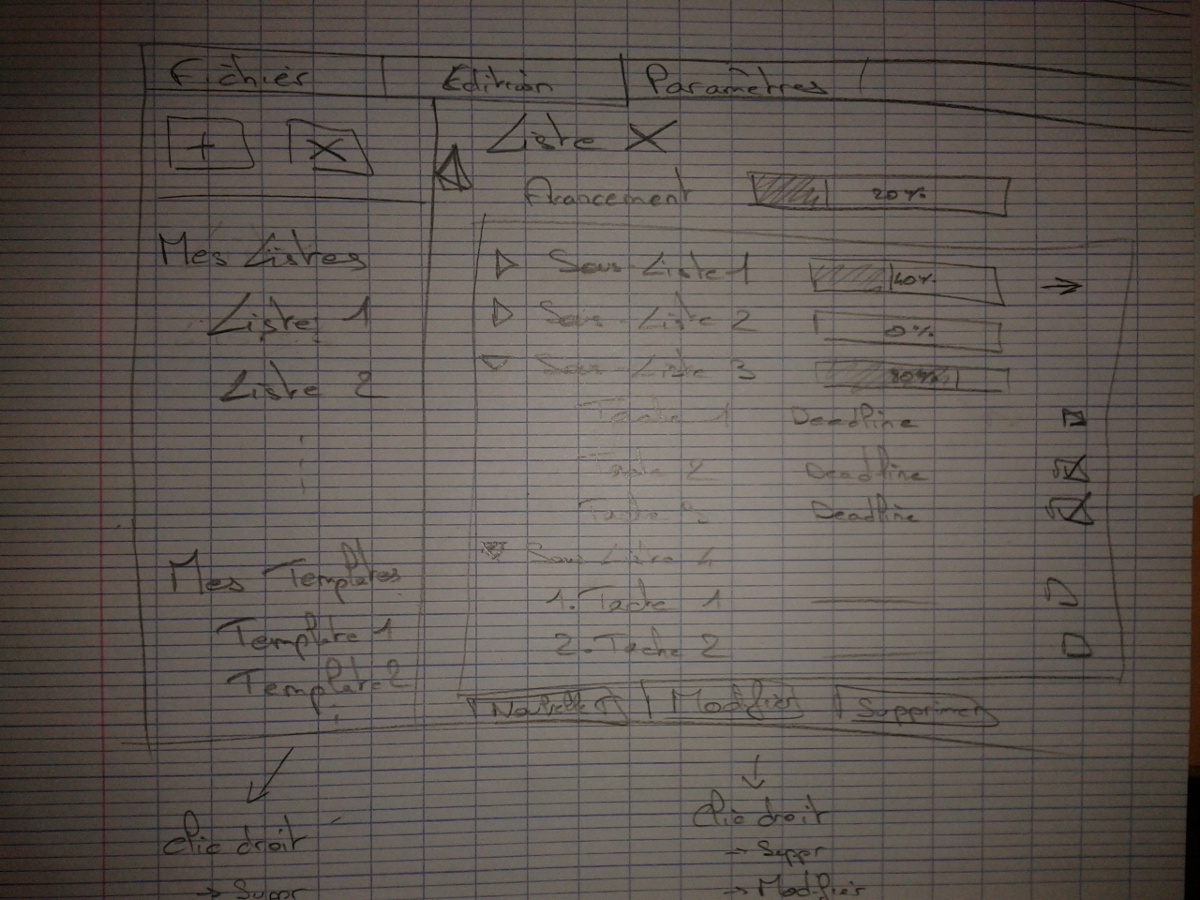 Fichier Edition Paramètres
+ X
Liste X
Avancement 20%
Mes Listes
Liste 1
Liste 2
Mes Templates
Template 1
Template 2
Sous-Liste 1 40%
Sous-Liste 2 0%
Sous-Liste 3 80%
Tache 1 Deadline
Tache 2 Deadline
Tache 3 Deadline
Sous Liste 4
1. Tache 1
2. Tache 2
Modifier Supprimer
Clic droit
→ Suppr
Clic droit
→ Suppr
→ Modifier